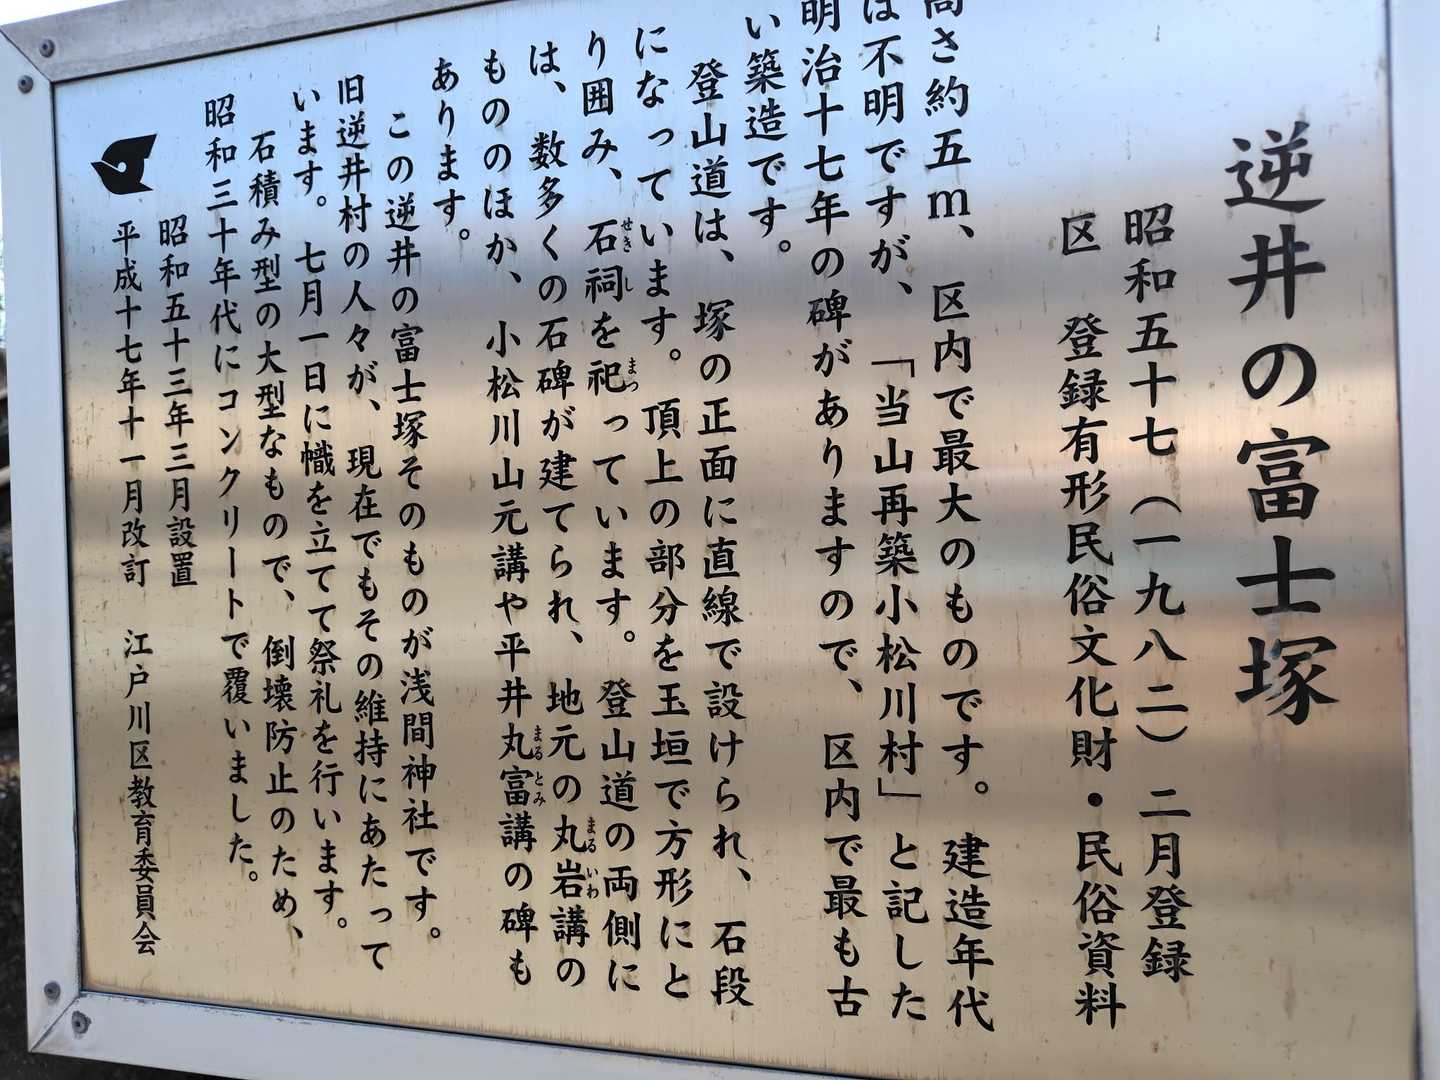 逆井の富士塚
昭和五十七(一九八二)二月登録
区 登録有形民俗文化財・民俗資料
高さ約五m、区内で最大のものです。建造年代
は不明ですが、「当山再築小松川村」と記した
明治十七年の碑がありますので、区内で最も古
い築造です。
登山道は、塚の正面に直線で設けられ、石段
になっています。頂上の部分を玉垣で方形にと
り囲み、石祠を祀っています。登山道の両側に
は、数多くの石碑が建てられ、地元の丸岩講の
もののほか、小松川山元講や平井丸富講の碑も
あります。
この逆井の富士塚そのものが浅間神社です。
旧逆井村の人々が、現在でもその維持にあたって
います。七月一日に幟を立てて祭礼を行います。
石積み型の大型なもので、倒壊防止のため、
昭和三十年代にコンクリートで覆いました。
昭和五十三年三月設置
平成十七年十一月改訂 江戸川区教育委員会